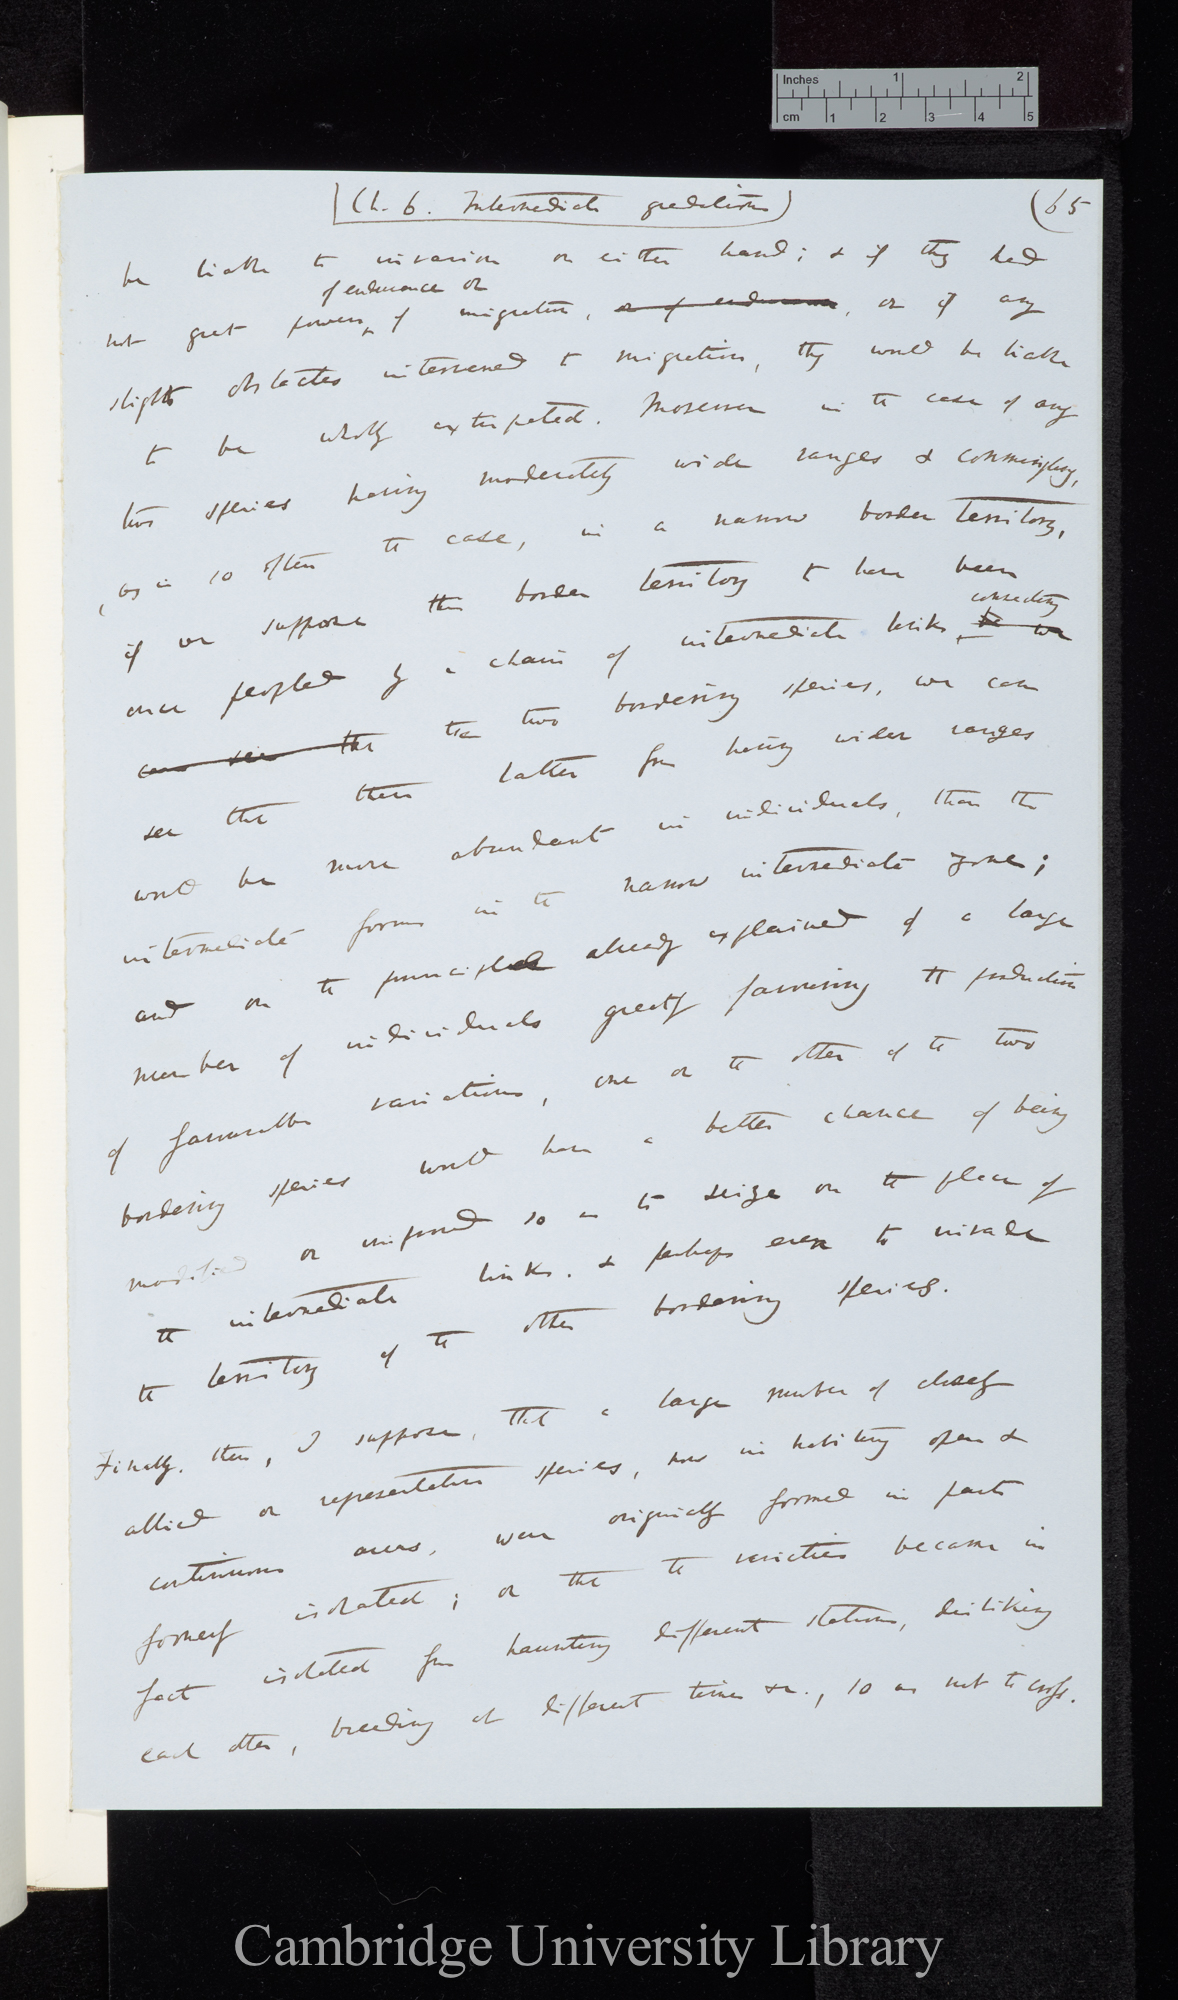 Inches 1 2
cm 1 2 3 4 5
Ch. 6. Intermediate gradations (65
be liable to invasion on either hand; & if they had
of endurance or
not great powers ^ of migration, or of endurance, or if any
slight obstacles intervened to migration, they would be liable
to be wholly extirpated. Moreover in the case of any
two species having moderately wide ranges & commingling,
, as is so often the case, in a narrow border territory,
if we suppose this border territory to have been
connecting
once peopled by a chain of intermediate links ^ be we
can see that the two bordering species, we can
see that these latter from having wider ranges
would be more abundant in individuals, than the
intermediate forms in the narrow intermediate zone;
and on the principle already explained of a large
number of individuals greatly favouring the production
of favourable variations, one or the other of the two
bordering species would have a better chance of being
modified or improved so as to seize on the place of
the intermediate links. & perhaps even to invade
the territory of the other bordering species.
Finally, then, I suppose, that a large number of closely
allied or representative species, now inhabiting open &
continuous areas, were originally formed in parts
formerly isolated; or that the varieties became in
fact isolated from haunting different stations, disliking
each other, breeding at different times &c., so as not to cross.
Cambridge University Library